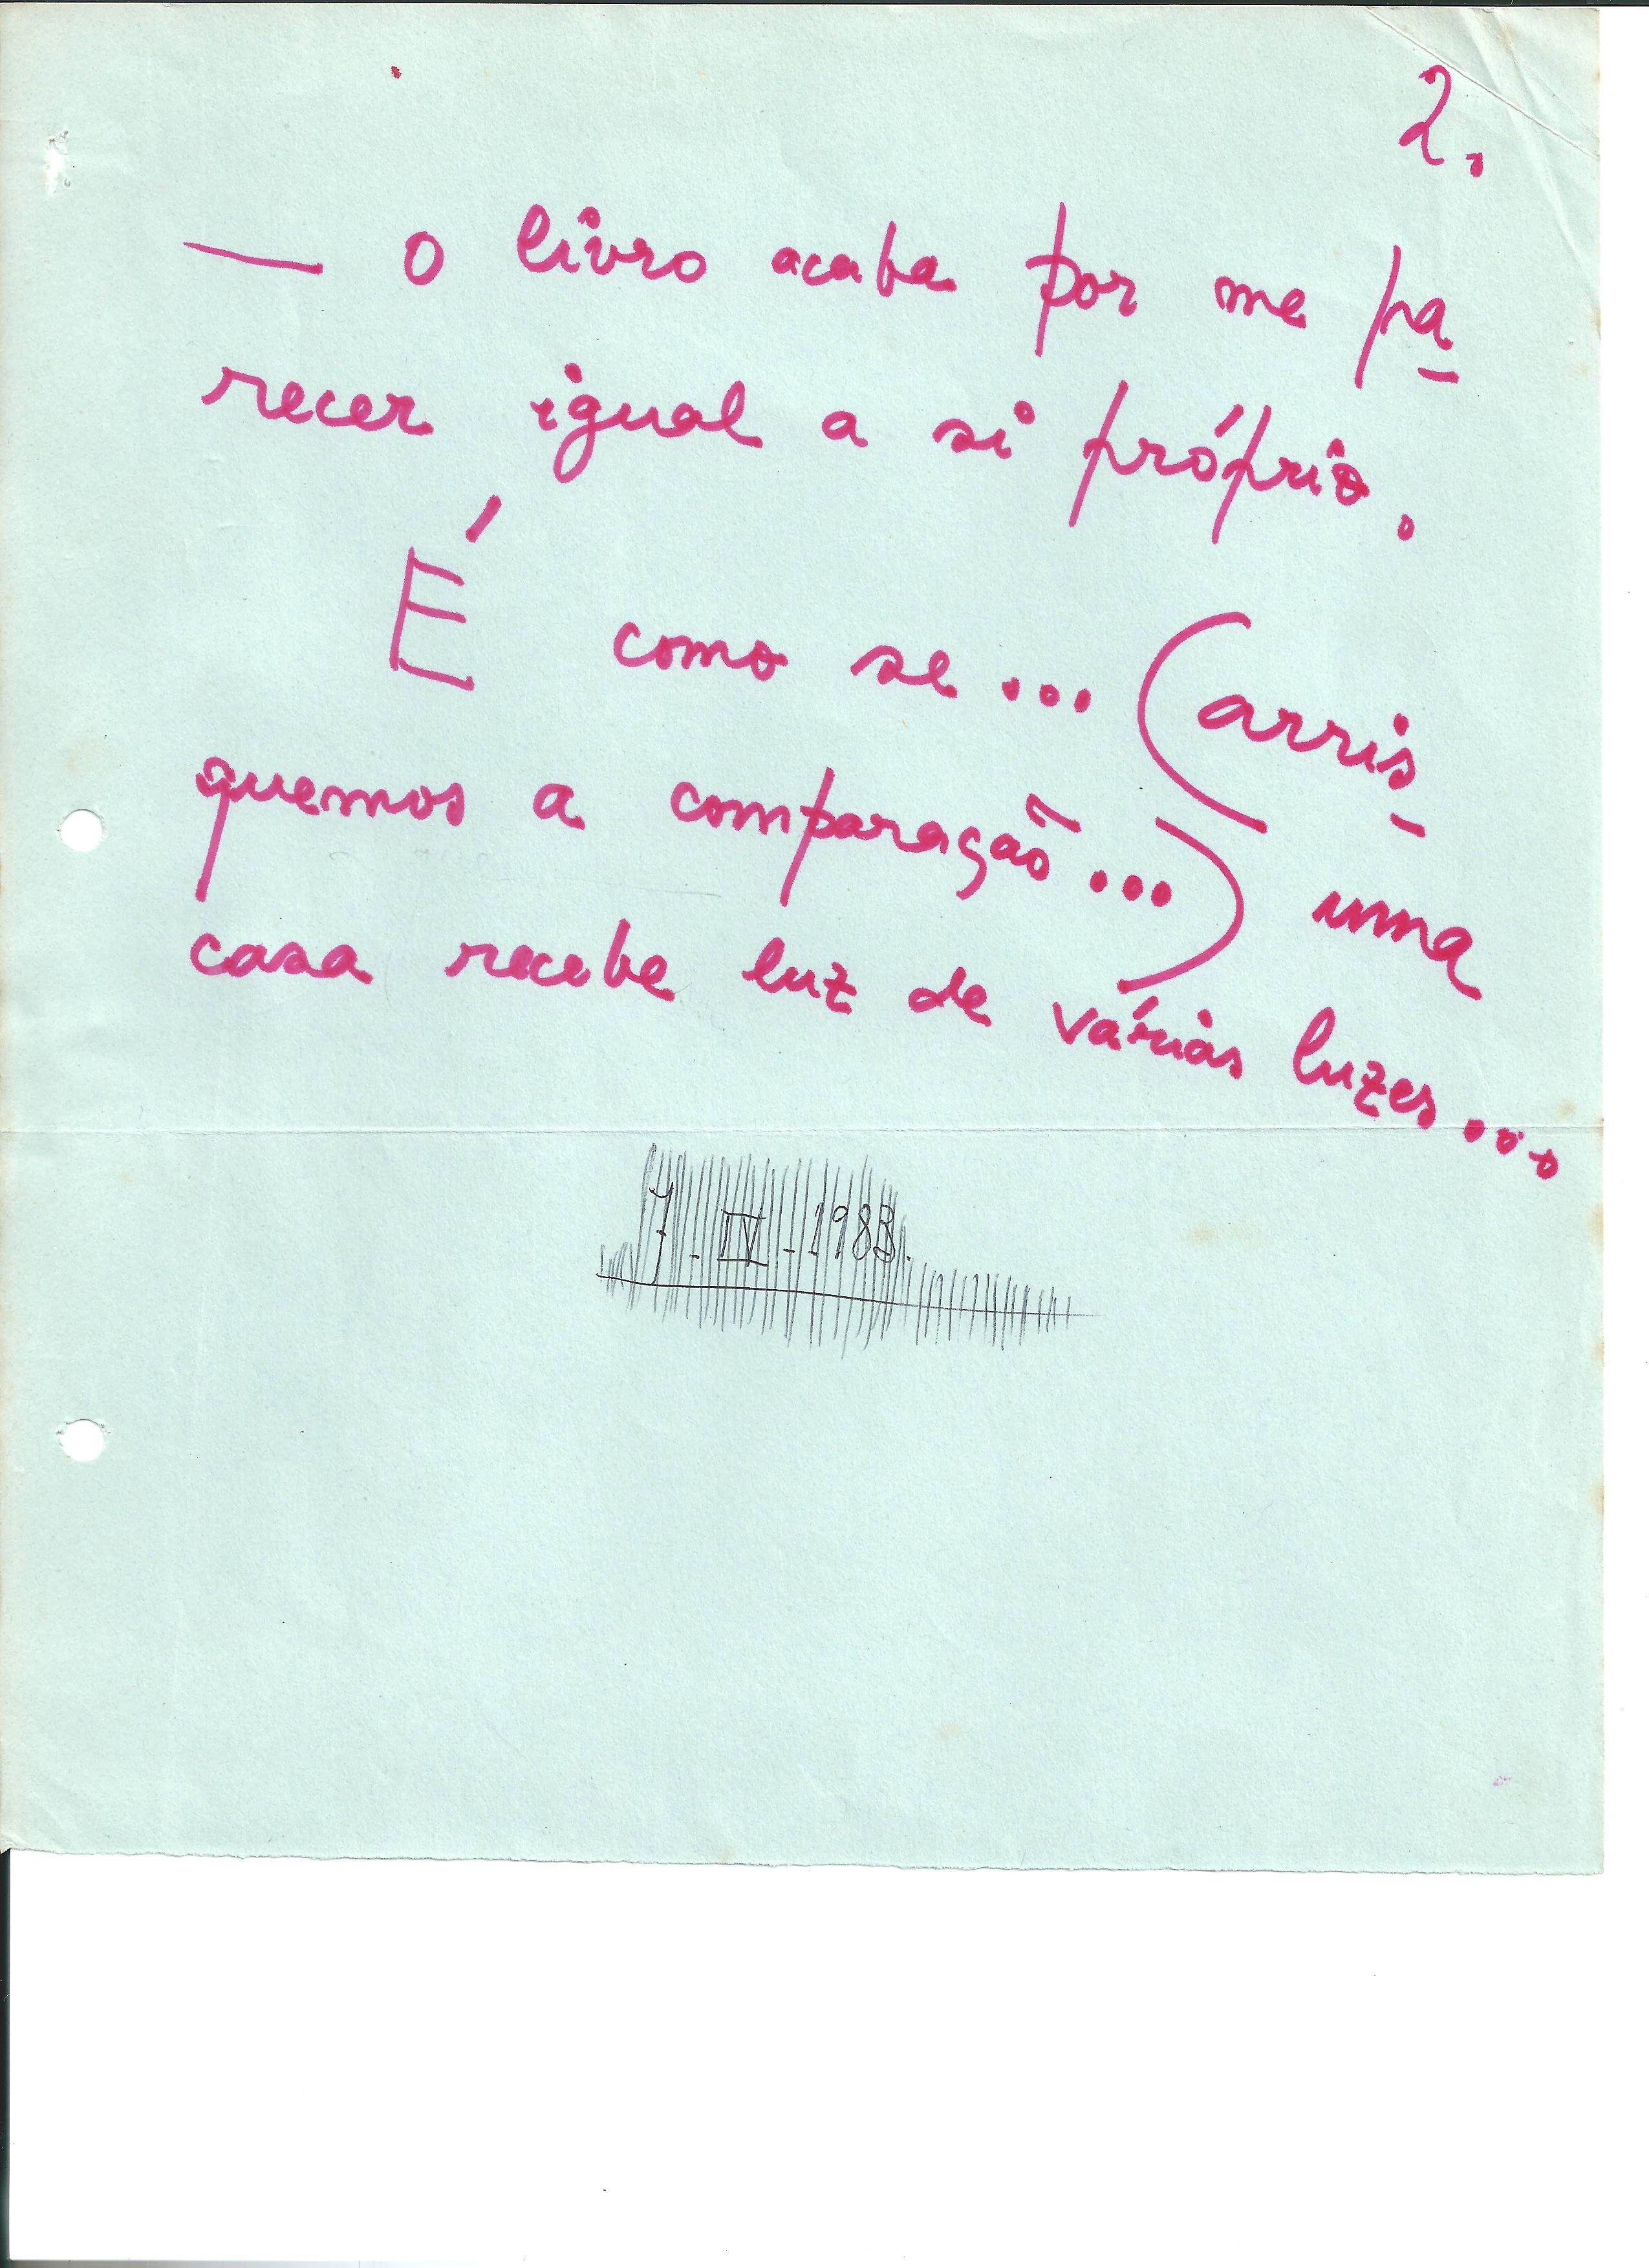 2.
— o livro acaba por me pa-
recer igual a si próprio.
É como se... (arris-
quemos a comparação...) uma
casa recebe luz de várias luzes...
7-IV-1983.